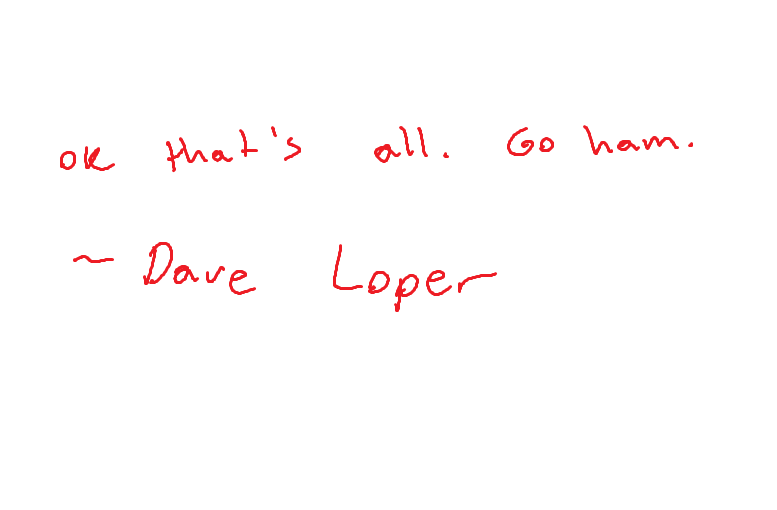 ok that's all. Go ham.
~ Dave Loper